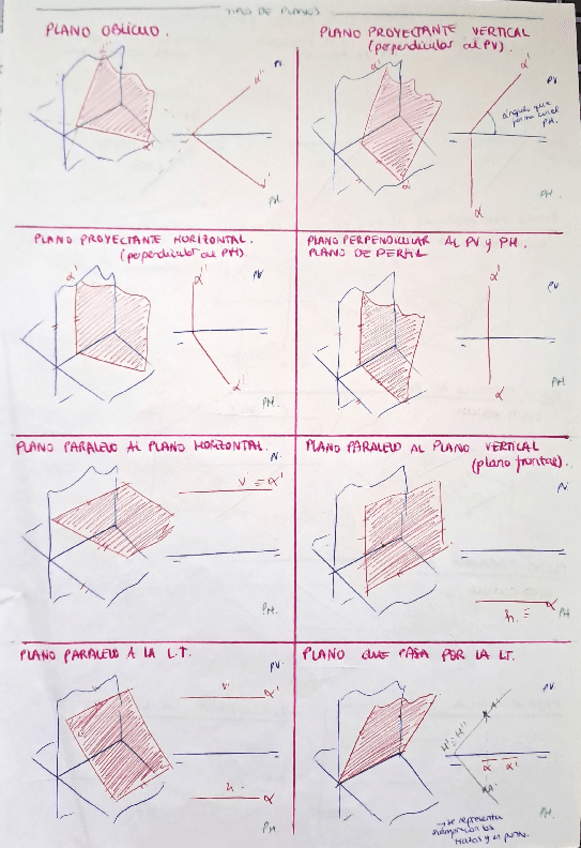 TIPO DE PLANOS
PLANO OBLICUO.
α''
α''
PV.
α
α'
PH.
PLANO PROYECTANTE VERTICAL
(perpendicular al PV).
α'
α'
PV
ángulo que
forma con el
PH.
α
α
PH.
PLANO PROYECTANTE HORIZONTAL.
(perpendicular al PH)
α'
α''
PV
α'
PH.
PLANO PERPENDICULAR AL PV y PH.
PLANO DE PERFIL
α''
PV
α'
PH.
PLANO PARALELO AL PLANO HORIZONTAL.
PV.
v' ≡ α'
PH.
PLANO PARALELO AL PLANO VERTICAL
(plano frontal).
PV.
h. ≡ α
PH
PLANO PARALELO A LA L.T.
PV.
v'
α'
h.
α
PH
PLANO QUE PASA POR LA LT.
PV.
A'
H' ≡ H''
α α'
A'
PH.
→ se representa
siempre con las
trazas y un punto.